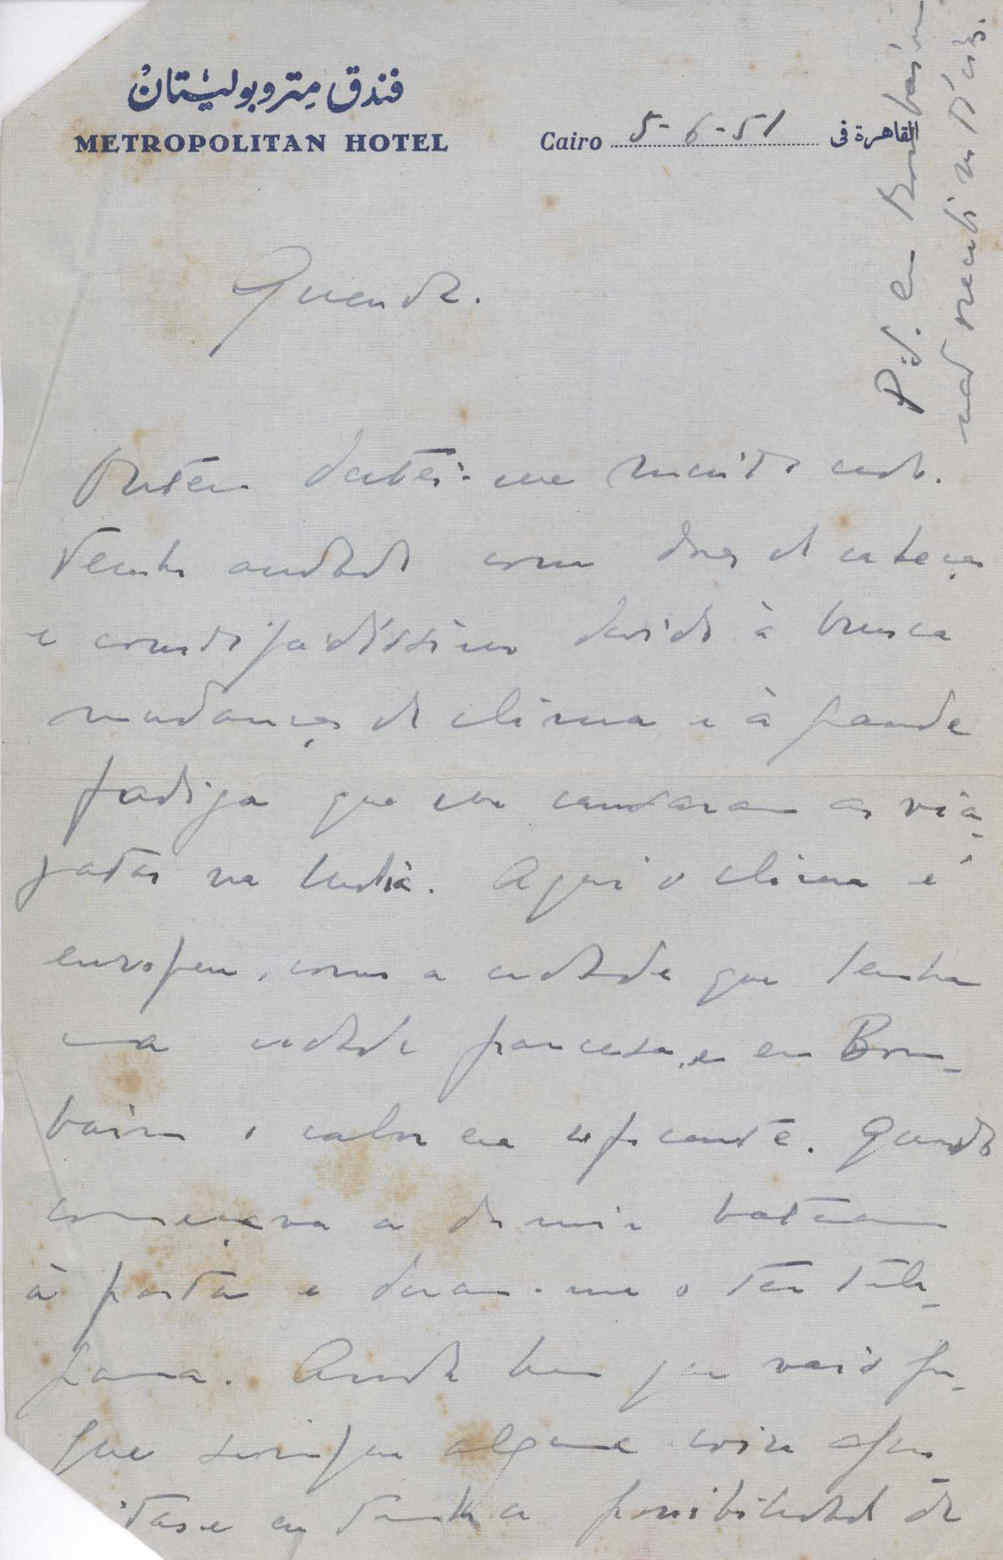 فندق متروبوليتان
METROPOLITAN HOTEL
Cairo 5-6-51 القاهرة فى
Querida.
Ontem deitei-me muito cedo.
Tenho andado com dores de cabeça
e constipadíssimo devido à brusca
mudança de clima e à grande
fadiga que me causaram as via-
gatas na India. Aqui o clima é
europeu, como a cidade que tenha
uma cidade francesa, e em Bom-
baim o calor era sufocante. Quando
começava a dormir bateram
à porta e deram-me o teu tele-
grama. Ainda bem que vais por-
que sempre alguma coisa
e tenha a possibilidade de
P.S. em Bombaim
não recebi notícias.